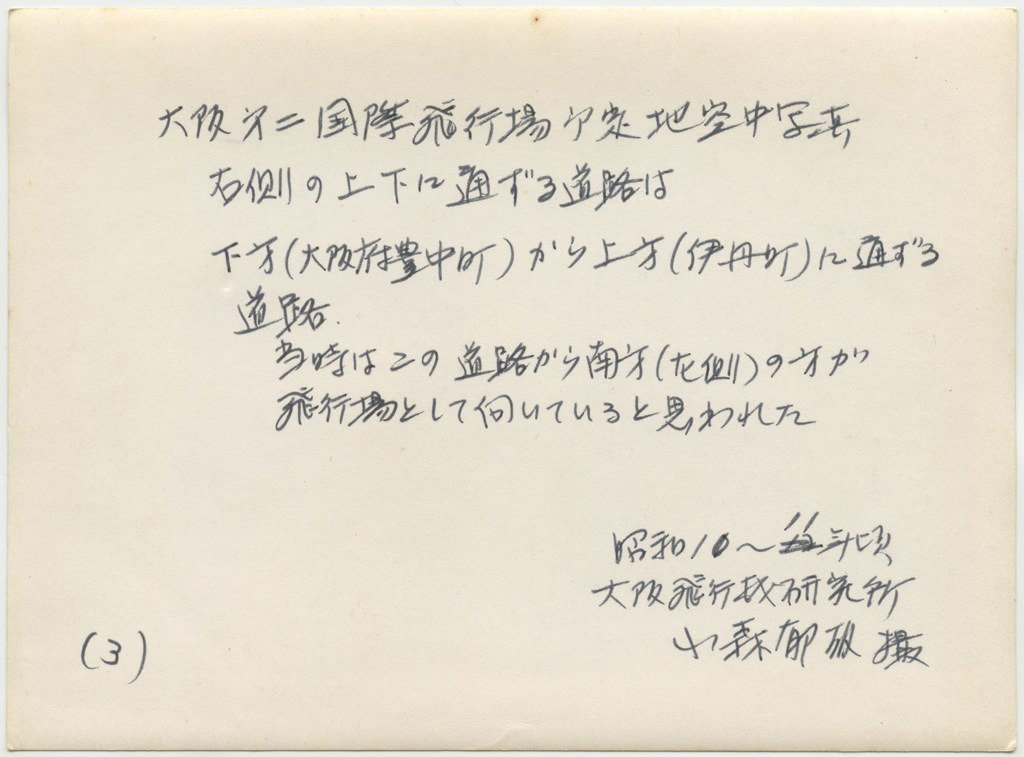 大阪第二国際飛行場予定地空中写真
右側の上下に通ずる道路は
下方(大阪府豊中町)から上方(伊丹町)に通ずる
道路.
当時はこの道路から南方(左側)の方が
飛行場として向いていると思われた
昭和10〜11年頃
大阪飛行機研究所
小森郁雄 撮
(3)